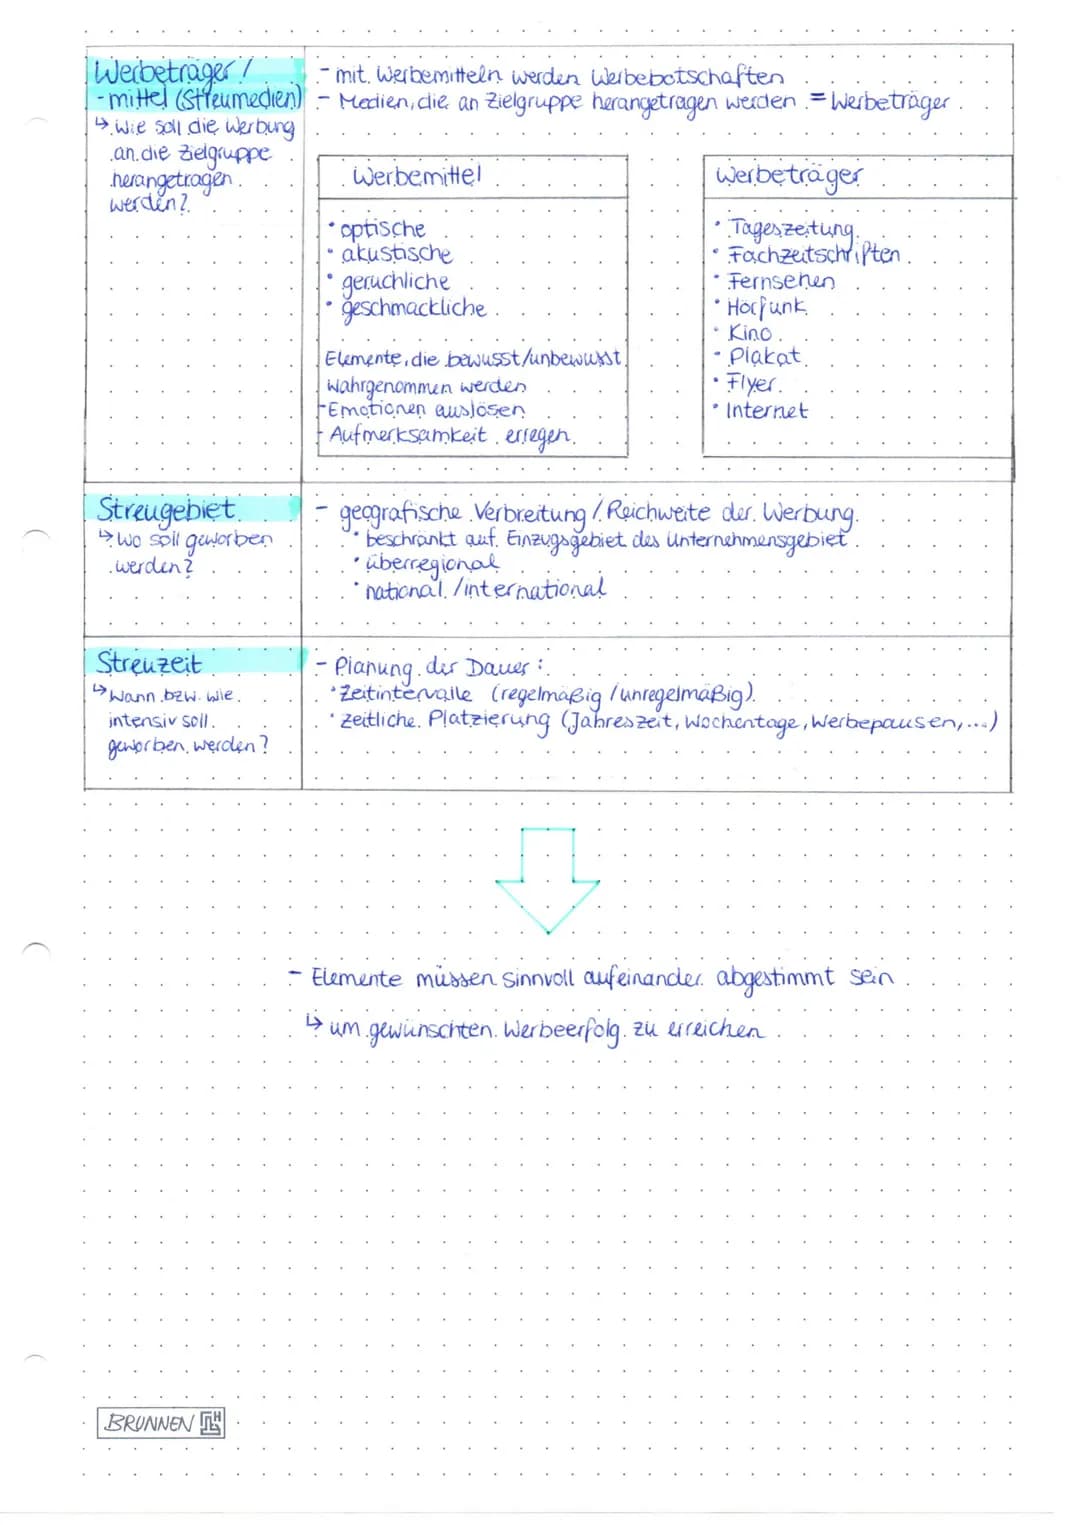 Werbeträger /
-mittel (Streumedien)
↳ Wie soll die Werbung
an die Zielgruppe
herangetragen
werden?
- mit Werbemitteln werden Werbebotschaften
- Medien, die an Zielgruppe herangetragen werden = Werbeträger
Werbemittel
• optische
• akustische
• geruchliche
• geschmackliche
Elemente, die bewusst/unbewusst
wahrgenommen werden
- Emotionen auslösen
- Aufmerksamkeit erregen
Werbeträger
• Tageszeitung
• Fachzeitschriften
• Fernsehen
• Hörfunk
• Kino
• Plakat
• Flyer
• Internet
Streugebiet
↳ Wo soll geworben
werden?
- geografische Verbreitung / Reichweite der Werbung
• beschränkt auf Einzugsgebiet des Unternehmensgebiet
• überregional
• national / international
Streuzeit
↳ Wann bzw. wie
intensiv soll
geworben werden?
- Planung der Dauer:
• Zeitintervalle (regelmäßig / unregelmäßig)
• zeitliche Platzierung (Jahreszeit, Wochentage, Werbepausen,...)
- Elemente müssen sinnvoll aufeinander abgestimmt sein
↳ um gewünschten Werbeerfolg zu erreichen
BRUNNEN